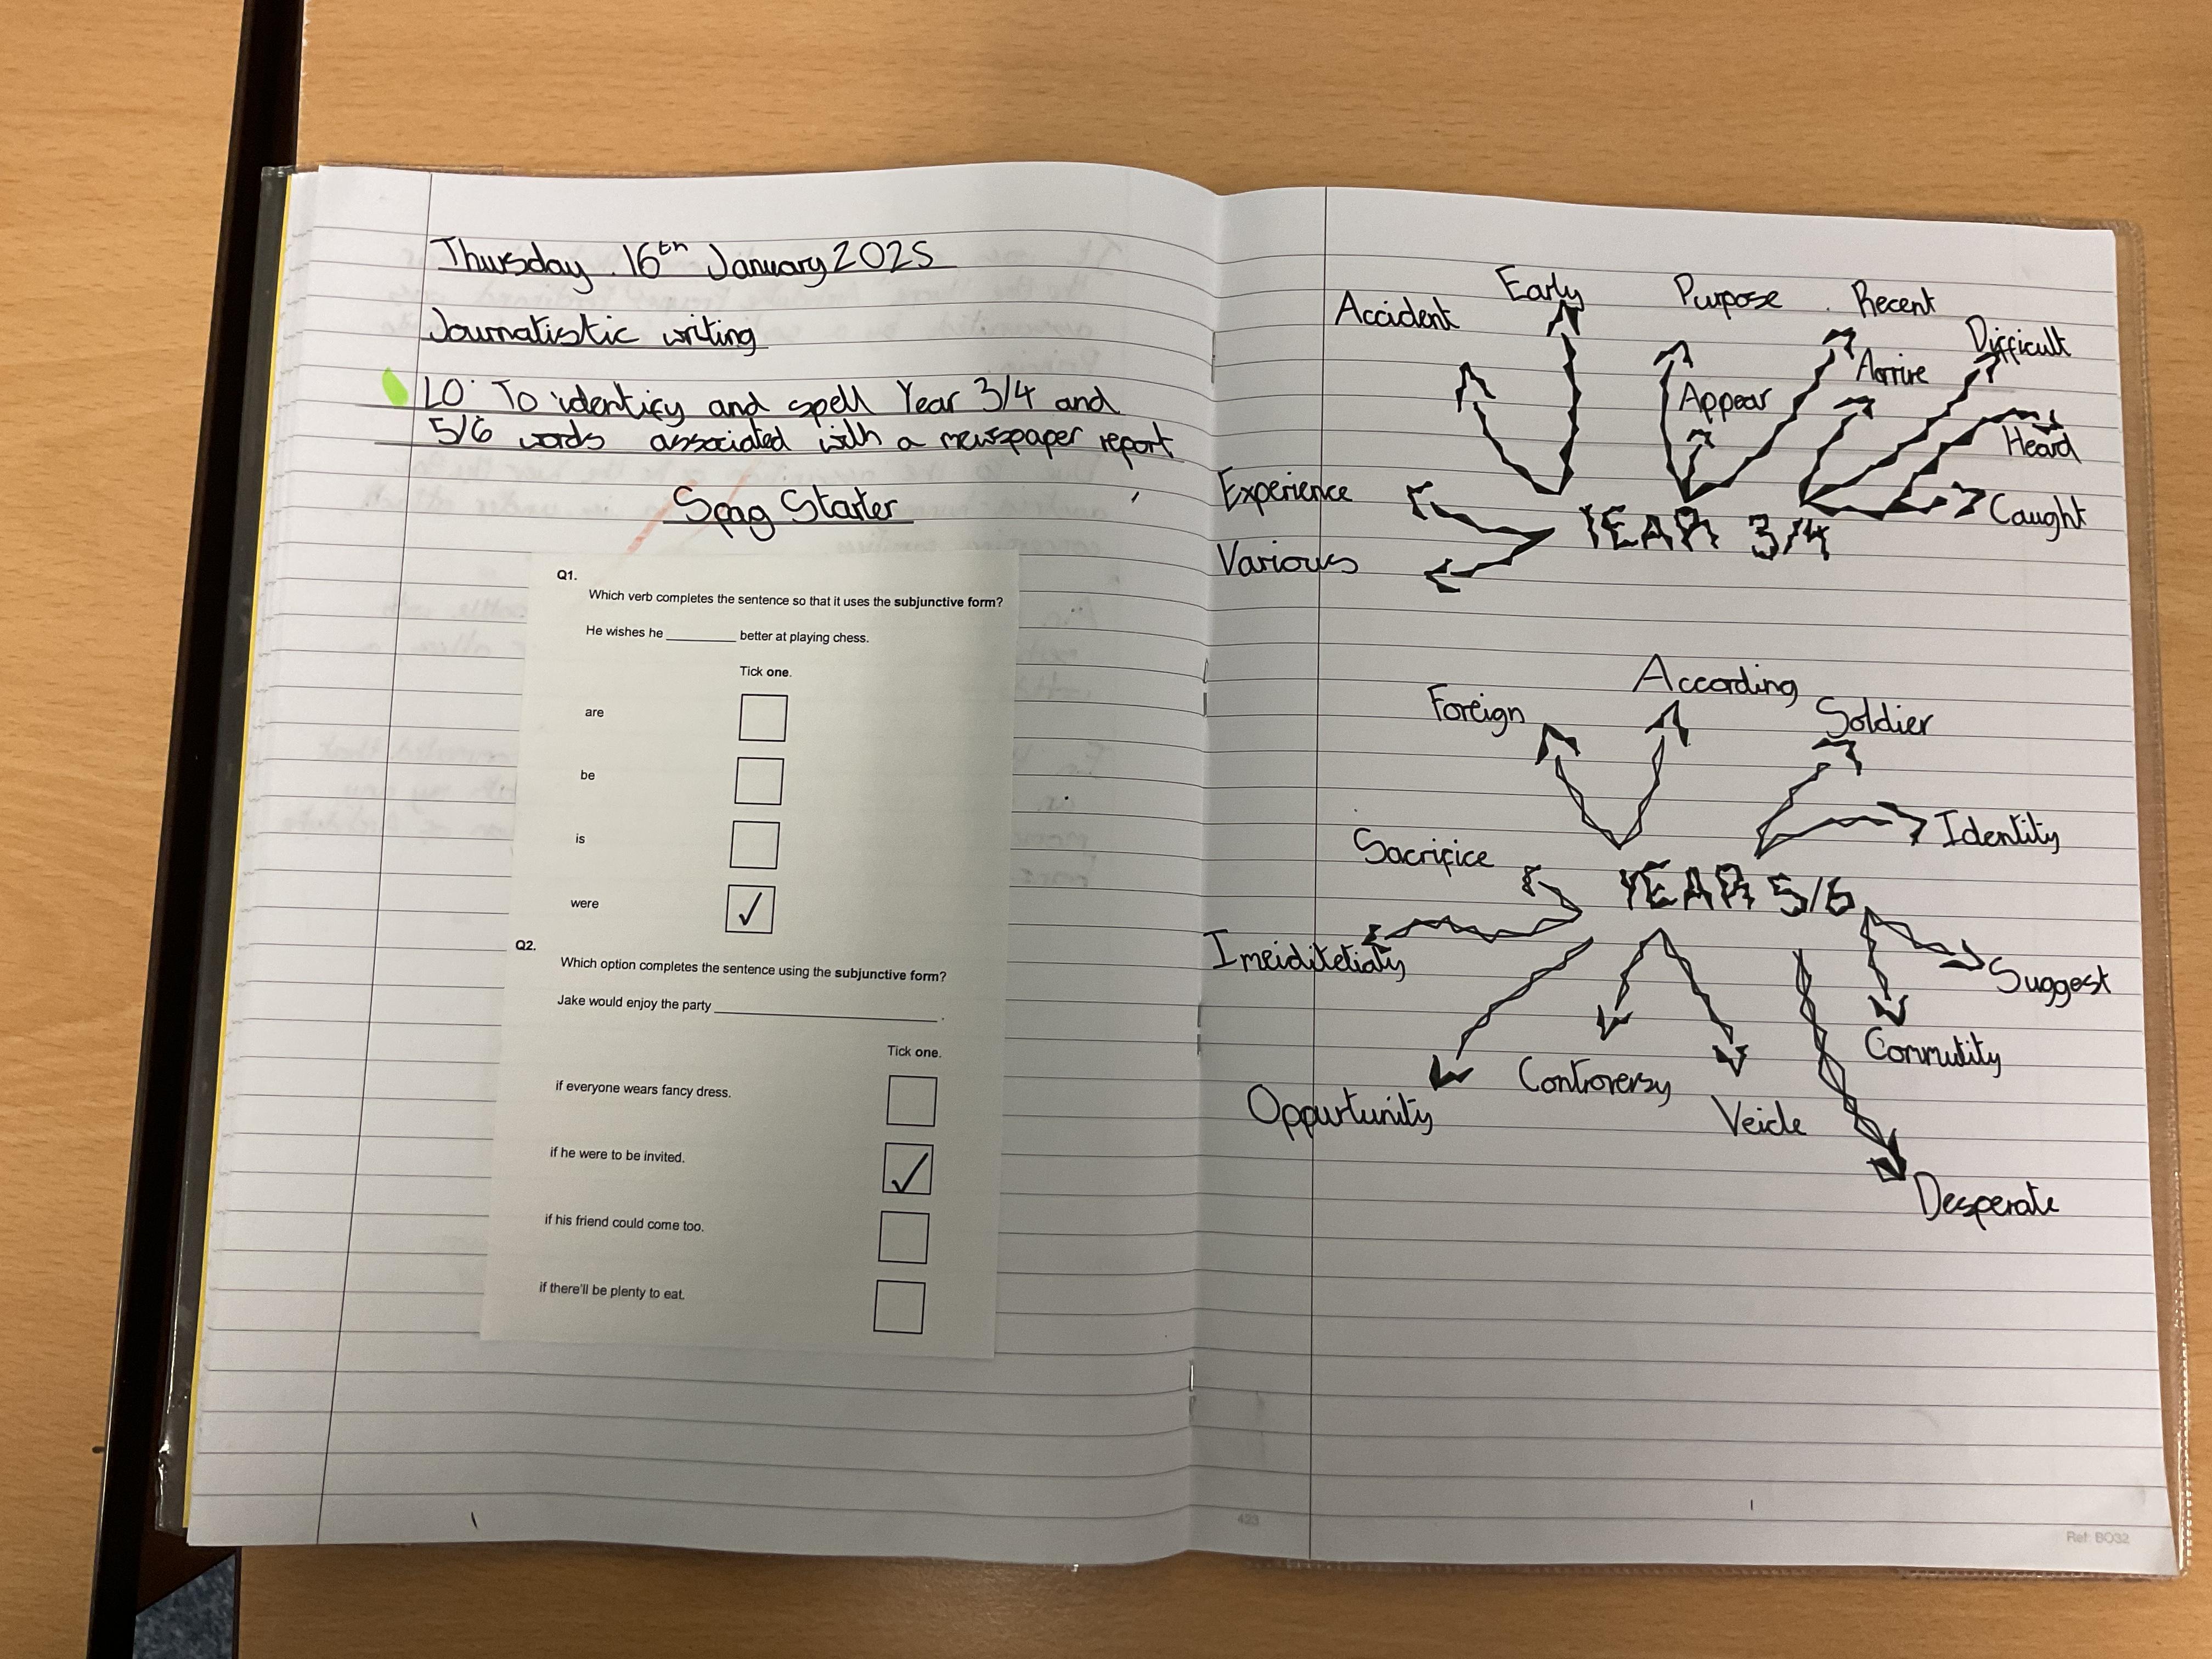 Thursday 16th January 2025
Journalistic writing
LO: To identify and spell Year 3/4 and
5/6 words associated with a newspaper report
Spag Starter
Q1.
Which verb completes the sentence so that it uses the subjunctive form?
He wishes he ________ better at playing chess.
Tick one.
are
be
is
were ✓
Q2.
Which option completes the sentence using the subjunctive form?
Jake would enjoy the party ________.
Tick one.
if everyone wears fancy dress.
if he were to be invited. ✓
if his friend could come too.
if there'll be plenty to eat.
Accident
Early
Purpose
Recent
Difficult
Appear
Arrive
Heard
Experience
Caught
YEAR 3/4
Various
According
Foreign
Soldier
Identity
Sacrifice
YEAR 5/6
Imeiditetiaty
Suggest
Commutity
Controversy
Oppurtunity
Veicle
Desperate
423
Ref: BO32